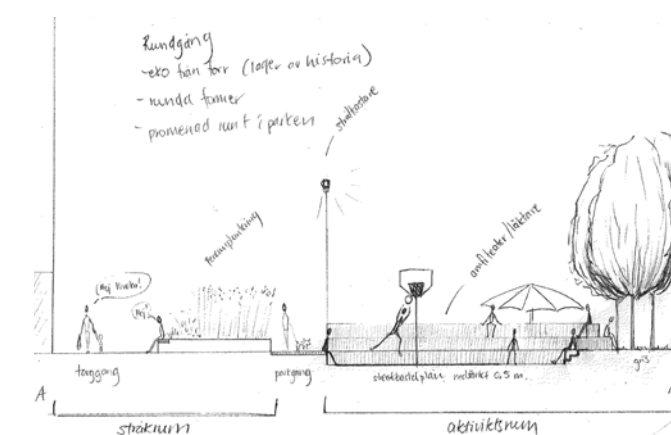 Rundgång
-eko från förr (lager av historia)
- runda former
- promenad runt i parken
strålkastare
perennplantering
amfiteater/läktare
Hej
torggång
parkgång
nedsänkt 0,5 m.
gräs
A
stråkrum
aktivitetsrum